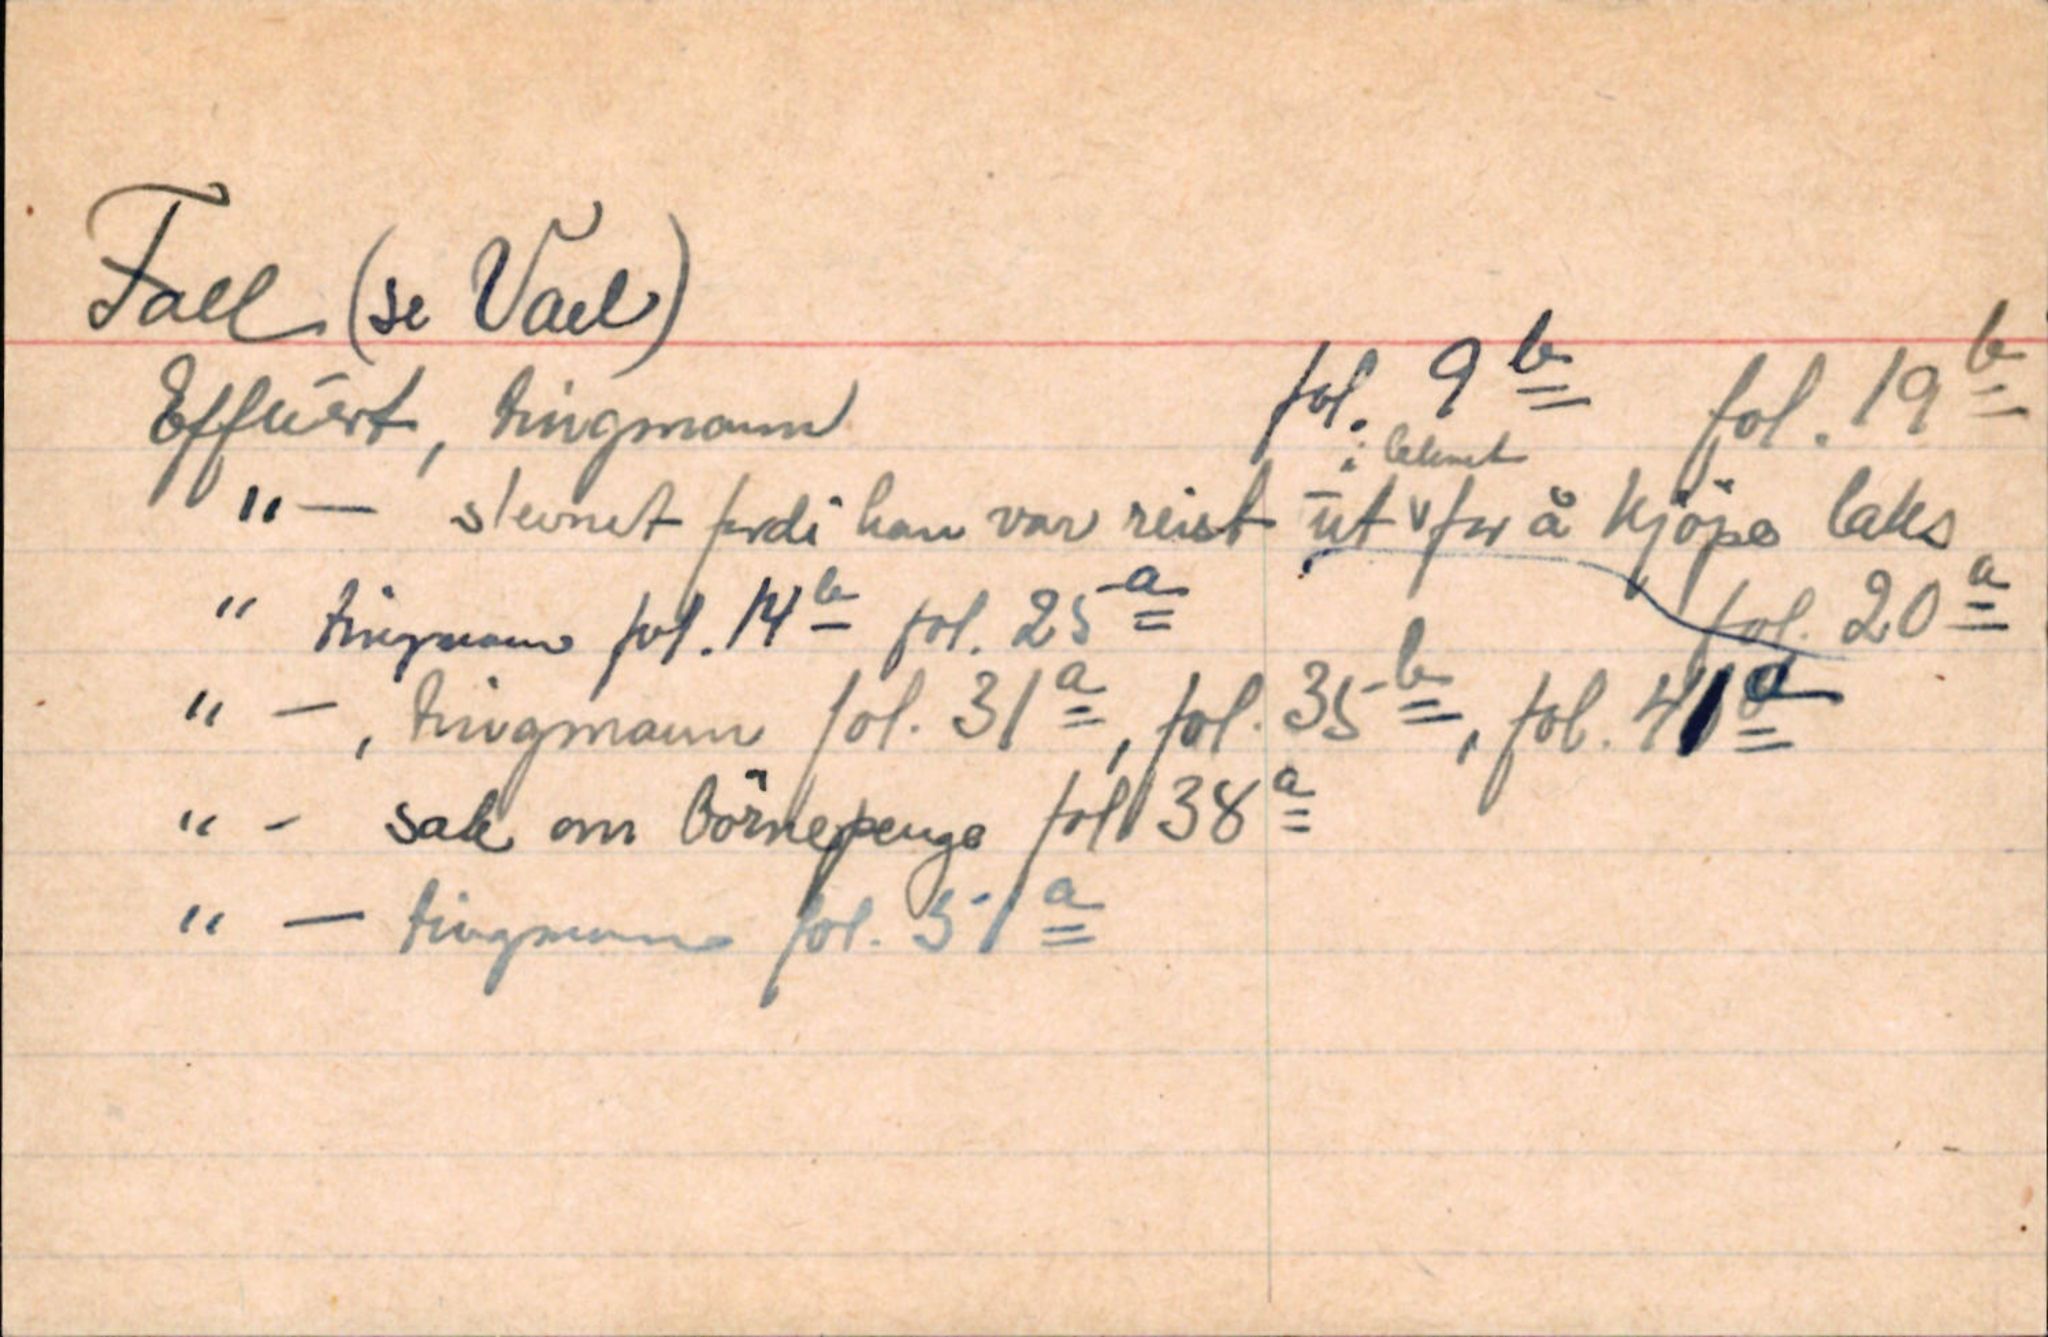 Fall (se Vall)
Effuert, tingmann fol. 9b fol. 19b
"— stevnet fordi han var reist ut i lehnet for å kjöpe laks
fol. 20a
" tingmann fol. 14b fol. 25a
" —, tingmann fol. 31a, fol. 35b, fol. 41a
" - sak om börnepenge fol 38a
" — tingmann fol. 51a